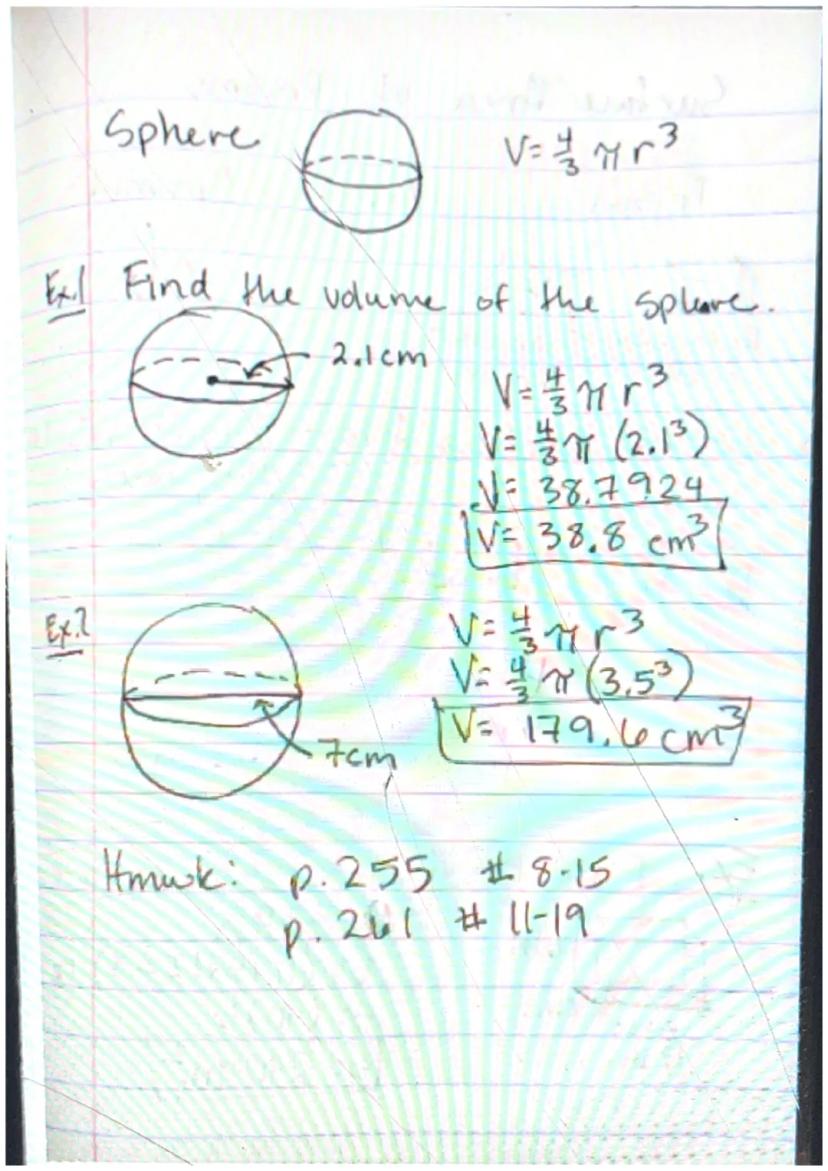 Sphere V= 4/3 π r³
Ex.1 Find the volume of the sphere.
2.1cm
V= 4/3 π r³
V= 4/3 π (2.1³)
V= 38.7924
V= 38.8 cm³
Ex.2
7cm
V= 4/3 π r³
V= 4/3 π (3.5³)
V= 179.6 cm³
Hmwk: p. 255 # 8-15
p. 261 # 11-19